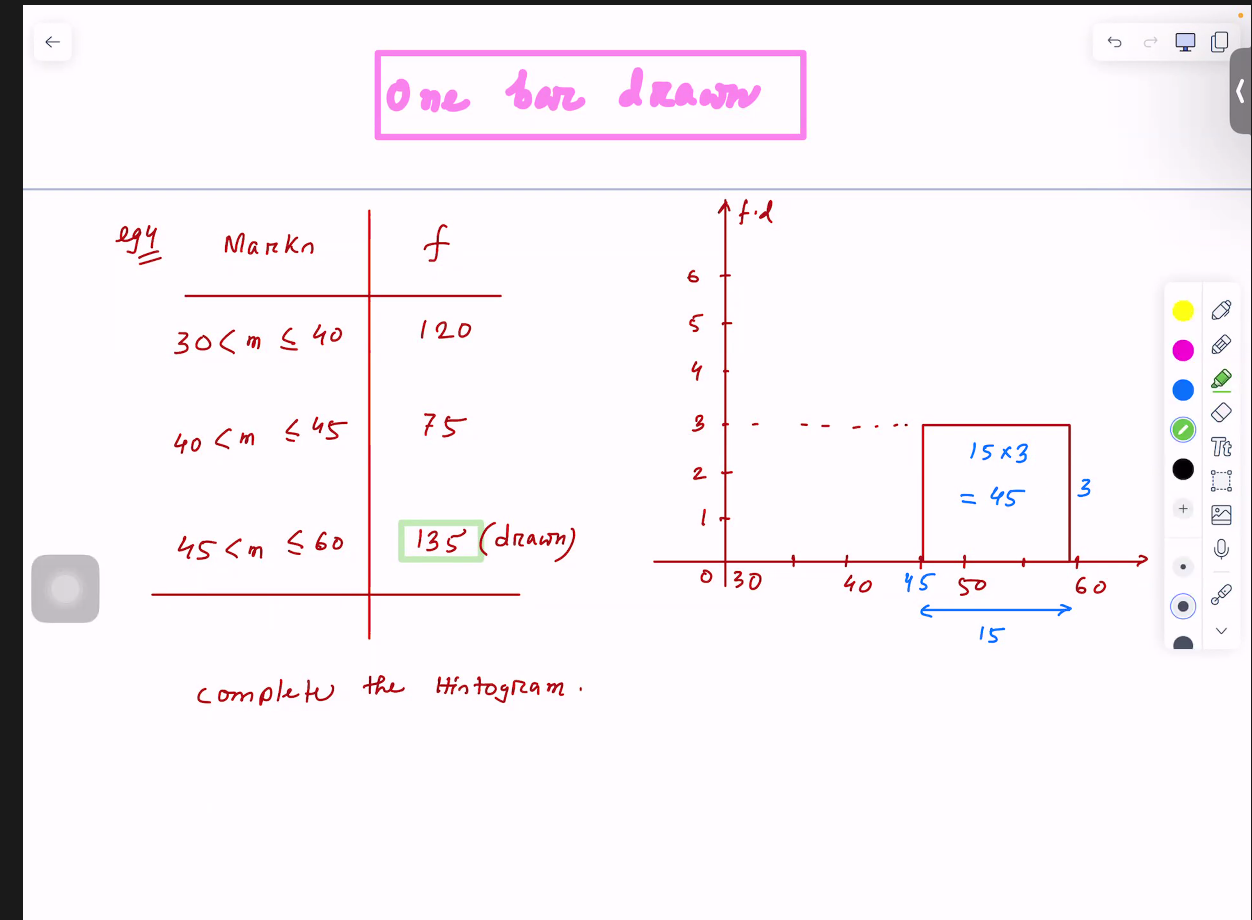 One bar drawn
eg4
Marks f
30 < m ≤ 40 120
40 < m ≤ 45 75
45 < m ≤ 60 135 (drawn)
complete the Histogram.
f.d
6
5
4
3
2
1
15 × 3
= 45
3
0 30 40 45 50 60
15
Tt